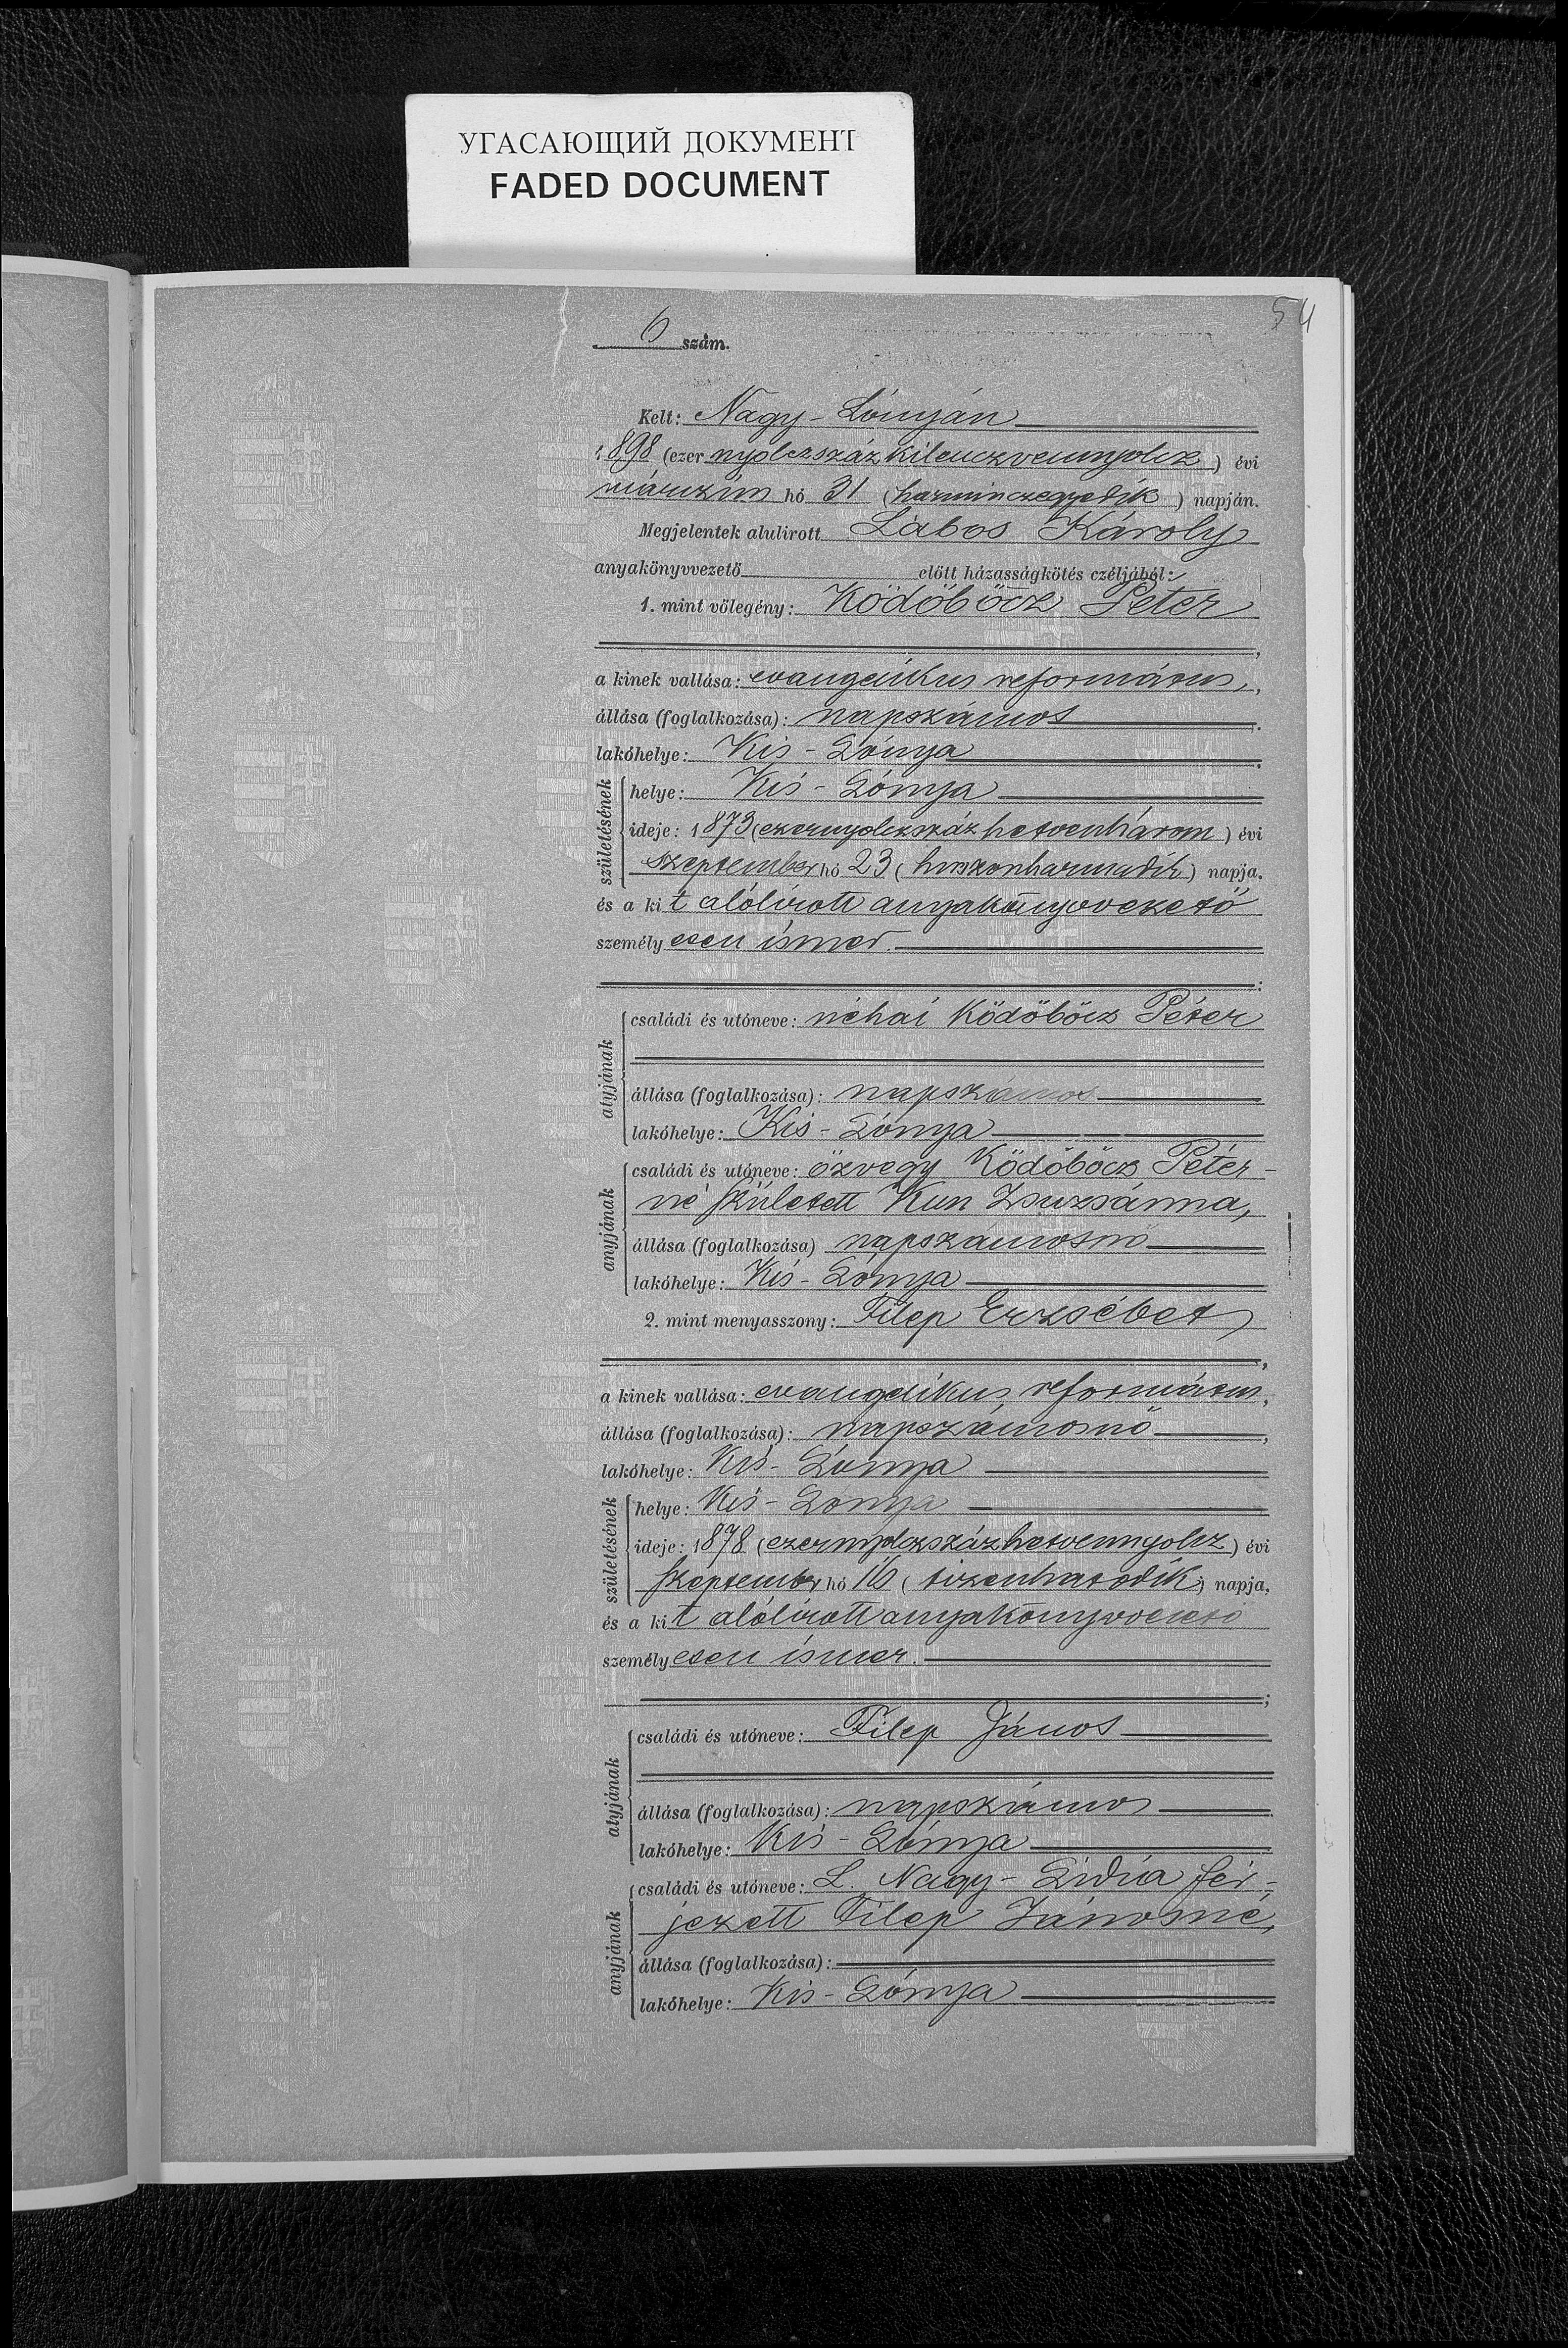 УГАСАЮЩИЙ ДОКУМЕНТ
FADED DOCUMENT
54
6 szám.
Kelt: Nagy-Lónyán
1898 (ezer nyolczszáz kilenczvennyolcz) évi
márczius hó 31 (harminczegyedik) napján.
Megjelentek alulirott Lábos Károly
anyakönyvvezető előtt házasságkötés czéljából:
1. mint vőlegény: Ködöböcz Péter
a kinek vallása: evangélikus református,
állása (foglalkozása): napszámos
lakóhelye: Kis-Lónya
születésének
helye: Kis-Lónya
ideje: 1873 (ezernyolczszázhetvenhárom) évi
szeptember hó 23 (huszonharmadik) napja.
és a kit alólírott anyakönyvvezető
személyesen ismer.
atyjának
családi és utóneve: néhai Ködöböcz Péter
állása (foglalkozása): napszámos
lakóhelye: Kis-Lónya
anyjának
családi és utóneve: özvegy Ködöböcz Péter-
né született Kun Zsuzsánna,
állása (foglalkozása) napszámosnő
lakóhelye: Kis-Lónya
2. mint menyasszony: Filep Erzsébet
a kinek vallása: evangélikus református,
állása (foglalkozása): napszámosnő
lakóhelye: Kis-Lónya
születésének
helye: Kis-Lónya
ideje: 1878 (ezernyolczszázhetvennyolcz) évi
szeptember hó 16 (tizenhatodik) napja,
és a kit alólírott anyakönyvvezető
személyesen ismer.
atyjának
családi és utóneve: Filep János
állása (foglalkozása): napszámos
lakóhelye: Kis-Lónya
anyjának
családi és utóneve: L. Nagy-Lidia fér-
jezett Filep Jánosné,
állása (foglalkozása):
lakóhelye: Kis-Lónya